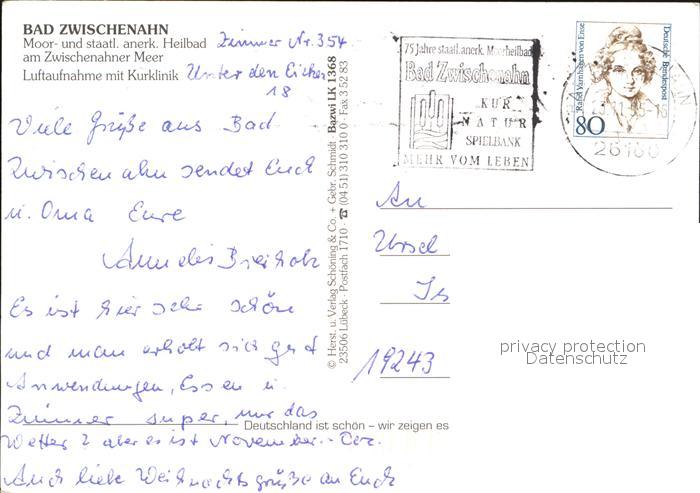 BAD ZWISCHENAHN
Moor- und staatl. anerk. Heilbad
am Zwischenahner Meer
Luftaufnahme mit Kurklinik
Zimmer Nr. 354
Unter den Eichen
18
Viele Grüße aus Bad
Zwischenahn sendet Euch
u. Oma Eure
Annelies
Es ist hier sehr schön
und man erholt sich gut
Anwendungen, Essen u.
Zimmer super, nur das
Wetter ? aber es ist November - Dez.
Auch liebe Weihnachtsgrüße an Euch
© Herst. u. Verlag Schöning & Co. + Gebr. Schmidt Bazwi LK 1368
23506 Lübeck · Postfach 1710 · ☎ (04 51) 310 310 · Fax 3 52 83
Deutschland ist schön – wir zeigen es
75 Jahre staatl. anerk. Moorheilbad
Bad Zwischenahn
KUR
NATUR
SPIELBANK
MEHR VOM LEBEN
Rahel Varnhagen von Ense
Deutsche Bundespost
80
26160
An
Ursel
19243
privacy protection
Datenschutz